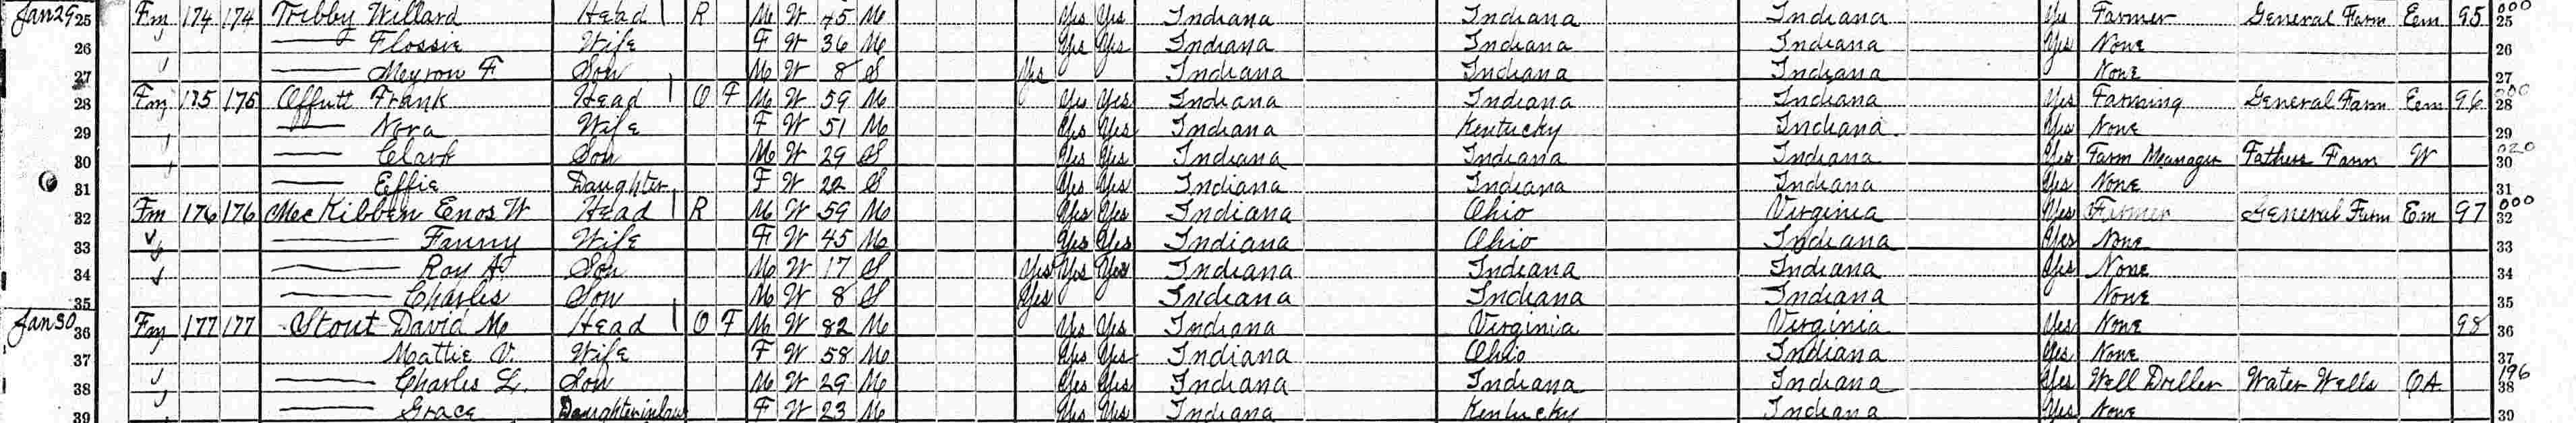 Jan 29 25 Fm 174 174 Tribby Willard Head R M W 45 M Yes Yes Indiana Indiana Indiana Yes Farmer General Farm Em 95 000 25
26 —— Flossie Wife F W 36 M Yes Yes Indiana Indiana Indiana Yes None 26
27 —— Meyron F Son M W 8 S Yes Indiana Indiana Indiana None 27
28 Fm 175 175 Offutt Frank Head O F M W 59 M Yes Yes Indiana Indiana Indiana Yes Farming General Farm Em 96 000 28
29 —— Nora Wife F W 51 M Yes Yes Indiana Kentucky Indiana Yes None 29
30 —— Clark Son M W 29 S Yes Yes Indiana Indiana Indiana Yes Farm Manager Fathers Farm W 020 30
31 —— Effie Daughter F W 22 S Yes Yes Indiana Indiana Indiana Yes None 31
32 Fm 176 176 McKibben Enos W Head R M W 59 M Yes Yes Indiana Ohio Virginia Yes Farmer General Farm Em 97 000 32
33 —— Fanny Wife F W 45 M Yes Yes Indiana Ohio Indiana Yes None 33
34 —— Roy A Son M W 17 S Yes Yes Yes Indiana Indiana Indiana Yes None 34
35 —— Charles Son M W 8 S Yes Indiana Indiana Indiana None 35
Jan 30 36 Fm 177 177 Stout David M Head O F M W 82 M Yes Yes Indiana Virginia Virginia Yes None 98 36
37 Mattie V. Wife F W 58 M Yes Yes Indiana Ohio Indiana Yes None 37
38 —— Charles L. Son M W 29 M Yes Yes Indiana Indiana Indiana Yes Well Driller Water Wells OA 196 38
39 —— Grace Daughterinlaw F W 23 M Yes Yes Indiana Kentucky Indiana Yes None 39